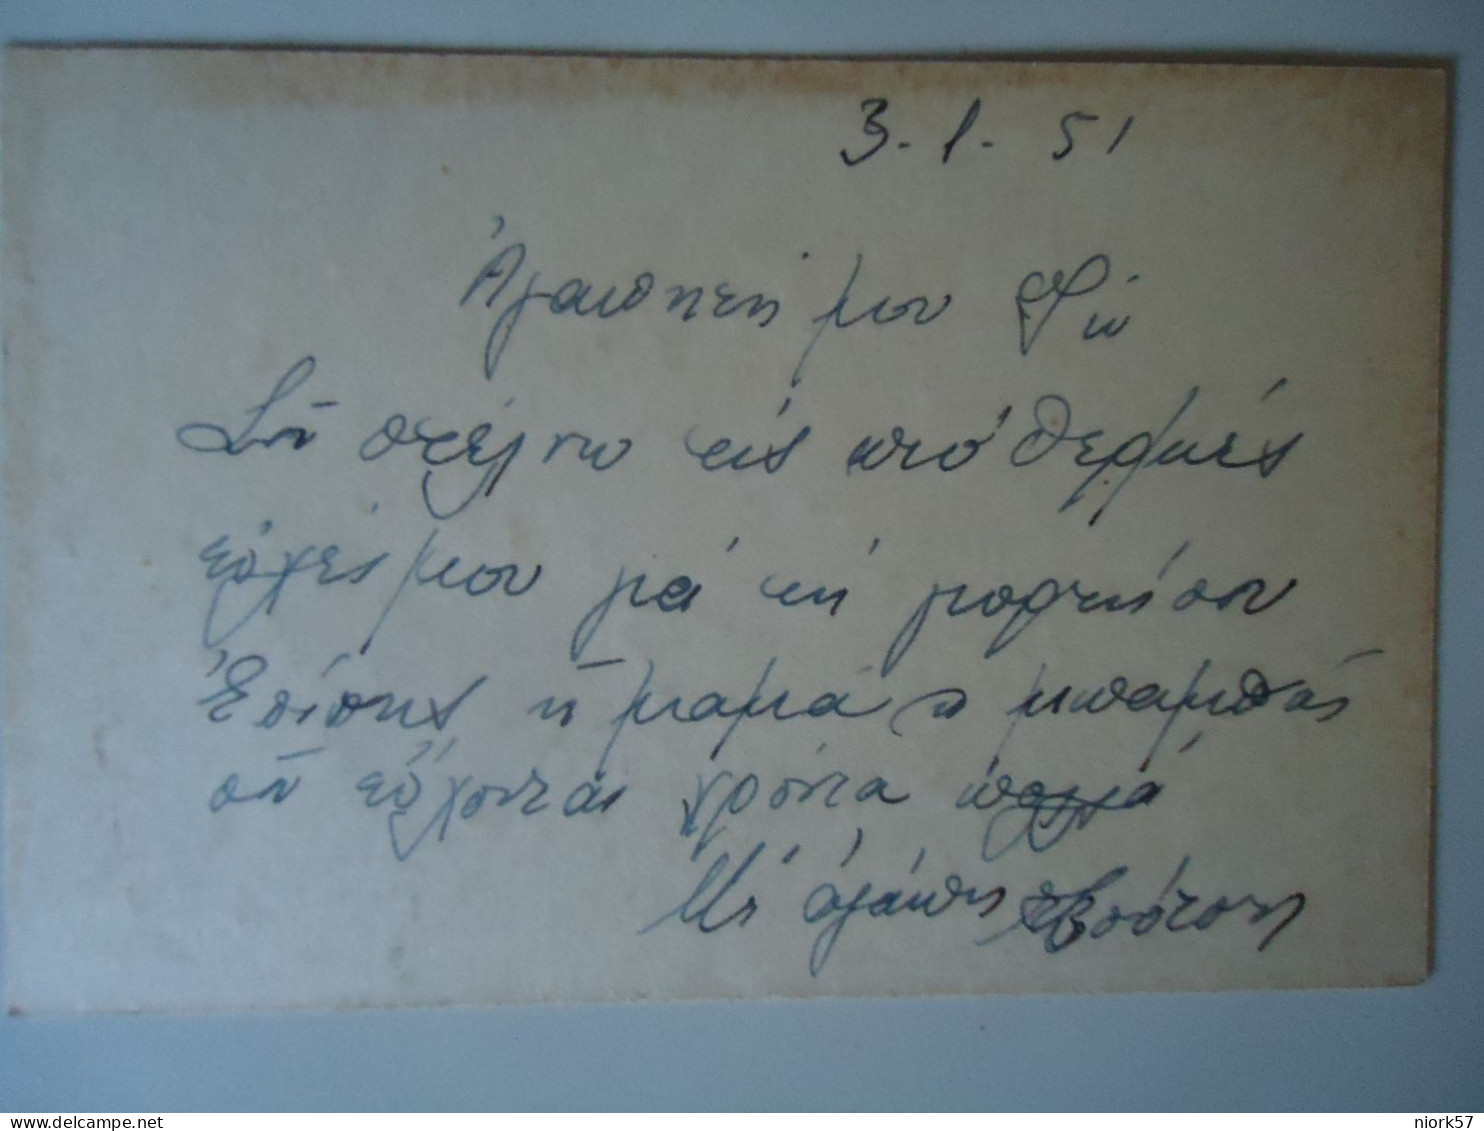 3-1-51
Ἀγαπητή μου Φώ
Σοῦ στέλνω τίς πιό θερμές
εὐχές μου γιά τή γιορτή σου
Ἐπίσης ἡ μαμά ὁ μπαμπάς
σοῦ εὔχονται χρόνια πολλά
Μέ ἀγάπη
niork57